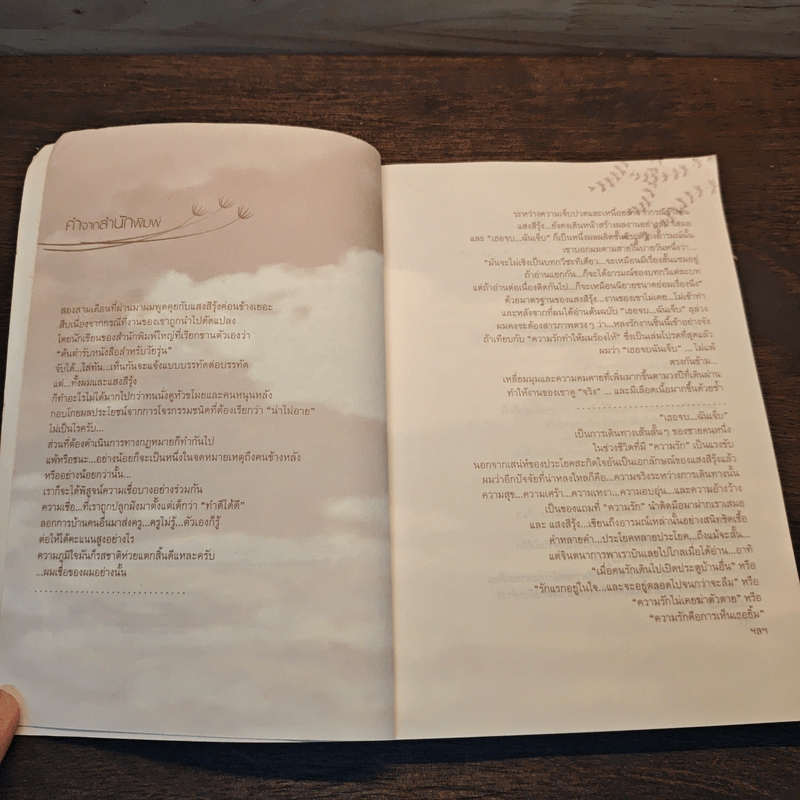 คำจากสำนักพิมพ์
สองสามเดือนที่ผ่านมาผมพูดคุยกับแสงสีรุ้งค่อนข้างเยอะ
สืบเนื่องจากกรณีที่งานของเขาถูกนำไปดัดแปลง
โดยนักเขียนของสำนักพิมพ์ใหญ่ที่เรียกขานตัวเองว่า
“ต้นตำรับหนังสือสำหรับวัยรุ่น”
จับได้...ไล่ทัน...เห็นกันจะแจ้งแบบบรรทัดต่อบรรทัด
แต่...ทั้งผมและแสงสีรุ้ง
ก็ทำอะไรไม่ได้มากไปกว่าทนนั่งดูหัวขโมยและคนหนุนหลัง
กอบโกยผลประโยชน์จากการโจรกรรมชนิดที่ต้องเรียกว่า “น่าไม่อาย”
ไม่เป็นไรครับ...
ส่วนที่ต้องดำเนินการทางกฎหมายก็ทำกันไป
แพ้หรือชนะ...อย่างน้อยก็จะเป็นหนึ่งในจดหมายเหตุถึงคนข้างหลัง
หรืออย่างน้อยกว่านั้น...
เราก็จะได้พิสูจน์ความเชื่อบางอย่างร่วมกัน
ความเชื่อ...ที่เราถูกปลูกฝังมาตั้งแต่เด็กว่า “ทำดีได้ดี”
ลอกการบ้านคนอื่นมาส่งครู...ครูไม่รู้...ตัวเองก็รู้
ต่อให้ได้คะแนนสูงอย่างไร
ความภูมิใจมันก็รสชาติห่วยแตกสิ้นดีแหละครับ
...ผมเชื่อของผมอย่างนั้น
............................
ระหว่างความเจ็บปวดและเหนื่อยล้า
แสงสีรุ้ง...ยังคงเดินหน้าสร้างผลงานอย่างสม่ำเสมอ
และ “เธอจบ...ฉันเจ็บ” ก็เป็นหนึ่งผลผลิตชั้นดีระหว่างอารมณ์นั้น
เขาบอกผมตามสายในบ่ายวันหนึ่งว่า...
“มันจะไม่เชิงเป็นบทกวีซะทีเดียว...จะเหมือนมีเรื่องสั้นแซมอยู่
ถ้าอ่านแยกกัน...ก็จะได้อารมณ์ของบทกวีแต่ละบท
แต่ถ้าอ่านต่อเนื่องติดกันไป...ก็จะเหมือนนิยายขนาดย่อมเรื่องนึง”
ด้วยมาตรฐานของแสงสีรุ้ง...งานของเขาไม่เคย...ไม่เข้าท่า
และหลังจากที่ผมได้อ่านต้นฉบับ “เธอจบ...ฉันเจ็บ” ลุล่วง
ผมคงจะต้องสารภาพตรงๆ ว่า...หลงรักงานชิ้นนี้เข้าอย่างจัง
ถ้าเทียบกับ “ความรักทำให้ผมร้องไห้” ซึ่งเป็นเล่มโปรดที่สุดแล้ว
ผมว่า “เธอจบฉันเจ็บ” ... ไม่แพ้
ตรงกันข้าม...
เหลี่ยมมุมและความคมคายที่เพิ่มมากขึ้นตามวงปีที่เดินผ่าน
ทำให้งานของเขาดู “จริง” ... และมีเลือดเนื้อมากขึ้นด้วยซ้ำ
............................
“เธอจบ...ฉันเจ็บ”
เป็นการเดินทางเส้นสั้นๆ ของชายคนหนึ่ง
ในช่วงชีวิตที่มี “ความรัก” เป็นแรงขับ
นอกจากเสน่ห์ของประโยคสะกิดใจอันเป็นเอกลักษณ์ของแสงสีรุ้งแล้ว
ผมว่าอีกปัจจัยที่น่าหลงใหลก็คือ...ความจริงระหว่างการเดินทางนั้น
ความสุข...ความเศร้า...ความเหงา...ความอบอุ่น...และความอ้างว้าง
เป็นของแถมที่ “ความรัก” นำติดมือมาฝากเราเสมอ
และ แสงสีรุ้ง...เขียนถึงอารมณ์เหล่านั้นอย่างสนิทชิดเชื้อ
คำหลายคำ...ประโยคหลายประโยค...ถึงแม้จะสั้น...
แต่จินตนาการพาเราบินเลยไปไกลเมื่อได้อ่าน...อาทิ
“เมื่อคนรักเดินไปเปิดประตูบ้านอื่น” หรือ
“รักแรกอยู่ในใจ...และจะอยู่ตลอดไปจนกว่าจะลืม” หรือ
“ความรักไม่เคยฆ่าตัวตาย” หรือ
“ความรักคือการเห็นเธอยิ้ม”
ฯลฯ